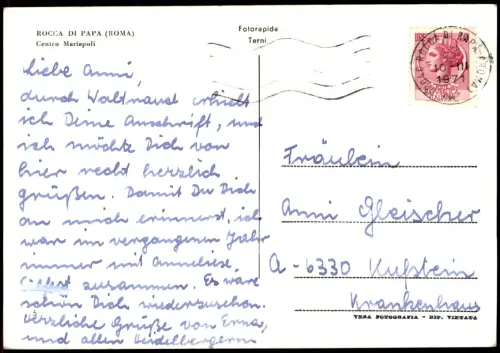 ROCCA DI PAPA (ROMA)
Centro Mariapoli
Fotorapida
Terni
Liebe Anni,
durch Waltraud erhielt
ich Deine Anschrift, und
ich möchte Dich von
hier recht herzlich
grüßen. Damit Du Dich
an mich erinnerst, ich
war im vergangenen Jahr
immer mit Anneliese
zusammen. Es wäre
schön Dich wiederzusehen.
Herzliche Grüße von Erna,
und allen Heidelbergern
ROCCA DI PAPA (ROMA)
10 III
1971
Fräulein
Anni Gleischer
A-6330 Kufstein
Krankenhaus
VERA FOTOGRAFIA - RIP. VIETATA